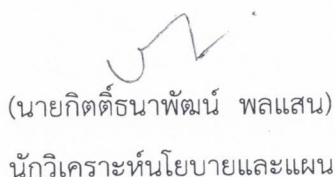 (นายกิตติ์ธนาพัฒน์ พลแสน)
นักวิเคราะห์นโยบายและแผน